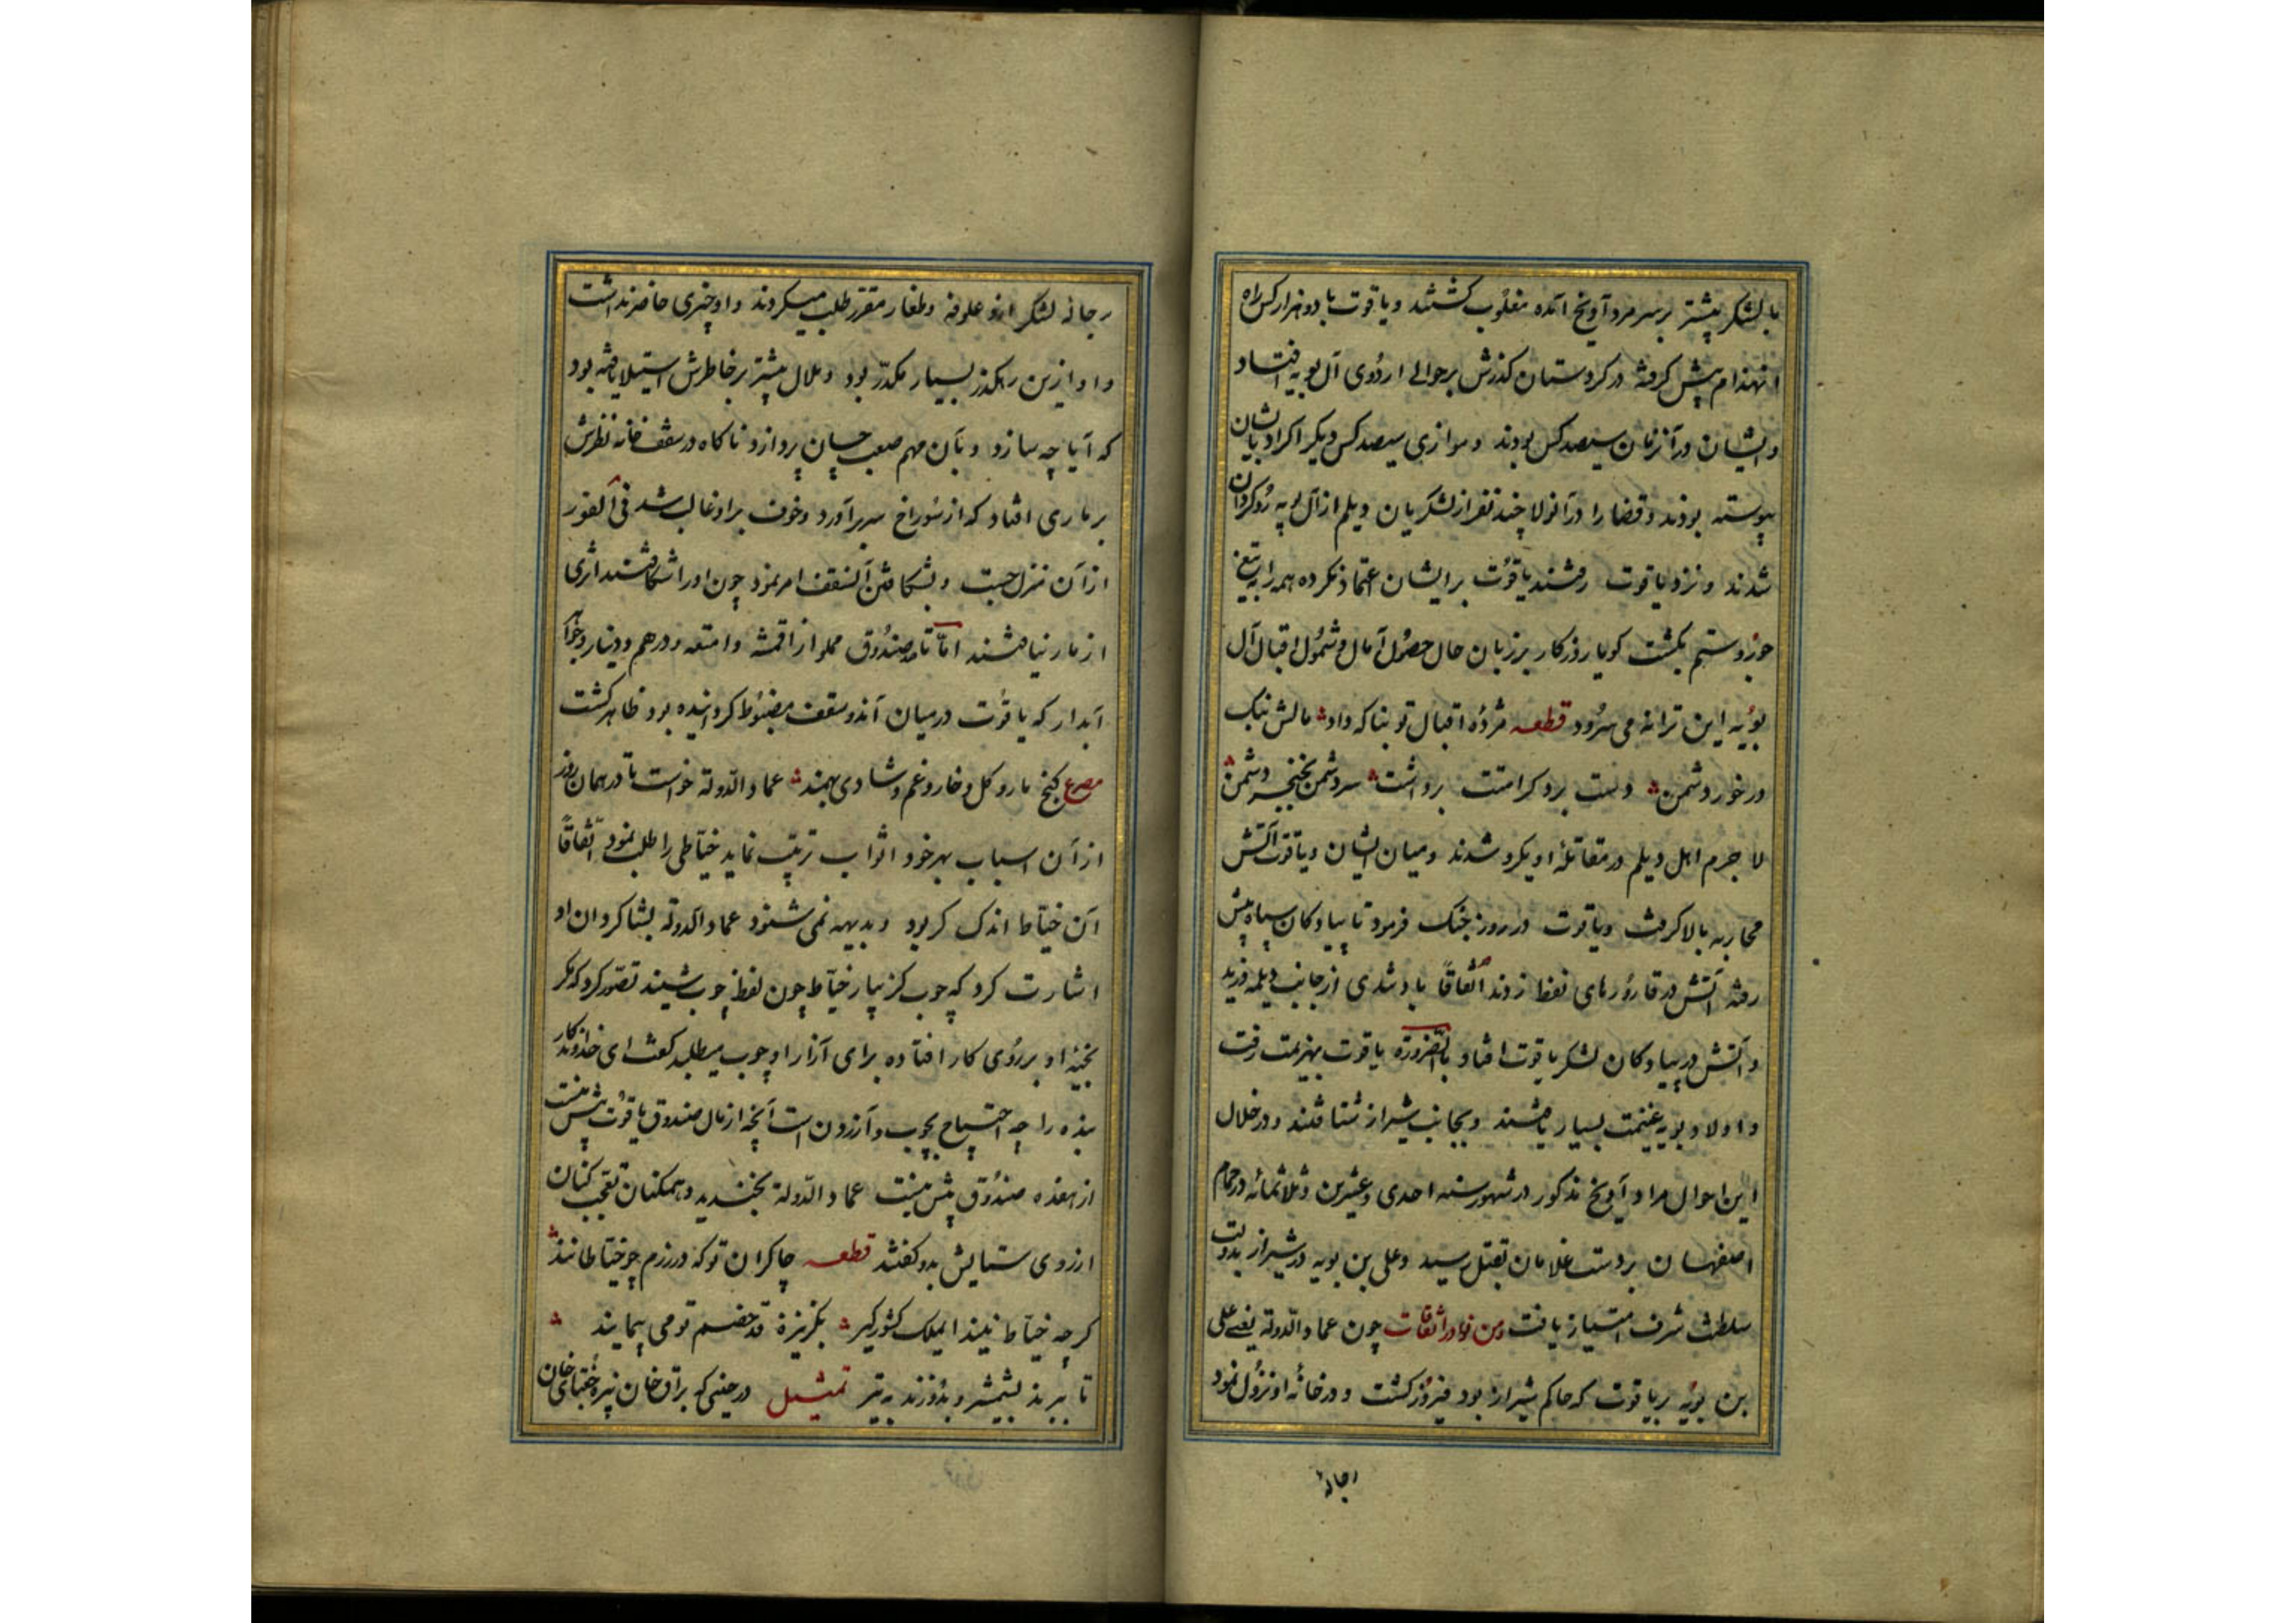 با لشکر بیشتر بر سر مرداویخ آمده مغلوب گشتند و یاقوت با دو هزار کس راه
انهزام پیش گرفته در کردستان گذرش بر حوالی اردوی آل بویه افتاد
و ایشان در آن زمان سیصد کس بودند و موازی سیصد کس دیگر اکراد بایشان
پیوسته بودند و قضا را در آنولا چند نفر از لشکریان دیلم از آل بویه روگردان
شدند و نزد یاقوت رفتند یاقوت بر ایشان اعتماد نکرده همه را بتیغ
جور و ستم بکشت گویا روزگار بر زبان حال حصول آمال و شمول اقبال آل
بویه این ترانه می سرود قطعه مژده اقبال تو بناگه داد مالش نیک
در خور دشمن دست برد کرامتت برداشت سر دشمن بخنجر دشمن
لاجرم اهل دیلم در مقاتله او یکرو شدند و میان ایشان و یاقوت آتش
محاربه بالا گرفت و یاقوت در روز جنک فرمود تا پیادگان سپاه پیش
رفته آتش در قارورهای نفط زدند اتفاقاً باد شدی از جانب دیلمه وزید
و آتش در پیادگان لشکر یاقوت افتاد بالضرورة یاقوت بهزیمت رفت
و اولاد بویه غنیمت بسیار یافتند و بجانب شیراز شتافتند و در خلال
این احوال مرداویخ مذکور در شهور سنه احدی و عشرین و ثلاثمائه در حمام
اصفهان بر دست غلامان بقتل رسید و علی بن بویه در شیراز بدولت
سلطنت شرف امتیاز یافت و من نوادر اتفاقات چون عماد الدوله یعنی علی
بن بویه بر یاقوت که حاکم شیراز بود فیروز گشت و در خانه او نزول نمود
رجاله لشکر ازو علوفه و طغار مقرر طلب میکردند و او چیزی حاضر نداشت
و او ازین رهگذر بسیار مکدر بود و ملال بیشتر بر خاطرش استیلا یافته بود
که آیا چه سازد و بآن مهم صعب چسان پردازد ناگاه در سقف خانه نظرش
بر ماری افتاد که از سوراخ سر برآورد و خوف بر او غالب شد فی الفور
از آن منزل جست و بشکافتن آن سقف امر نمود چون او را شکافتند اثری
از مار نیافتند اما تا صندوق مملو از اقمشه و امتعه و درهم و دینار و جواهر
آبدار که یاقوت در میان آن دو سقف مضبوط گردانیده بود ظاهر گشت
مصرع گنج و مار و گل و خار و غم و شادی بهمند عماد الدوله خواست تا در همان روز
از آن اسباب بهر خود اثواب ترتیب نماید خیاطی را طلب نمود اتفاقاً
آن خیاط اندک کر بود و بدیهه نمی شنود عماد الدوله بشاگردان او
اشارت کرد که چوب گز بیار خیاط چون لفظ چوب شنید تصور کرد که مگر
بخیه او بر روی کار افتاده برای آزار او چوب میطلبد گفت ای خداوندکار
بنده را چه احتیاج بچوب و آزردن است آنچه از مال صندوق یاقوت پیش منست
از هفده صندوق بیش نیست عماد الدوله بخندید و همگنان تعجب کنان
از روی ستایش بدو گفتند قطعه چاکران تو که در رزم چو خیاطانند
گرچه خیاط نیند ای ملک کشورگیر بگز نیزه قد خصم تو می پیمایند
تا ببرند بشمشیر و بدوزند به تیر تمثیل در حینی که براق خان نبیره جغتای خان